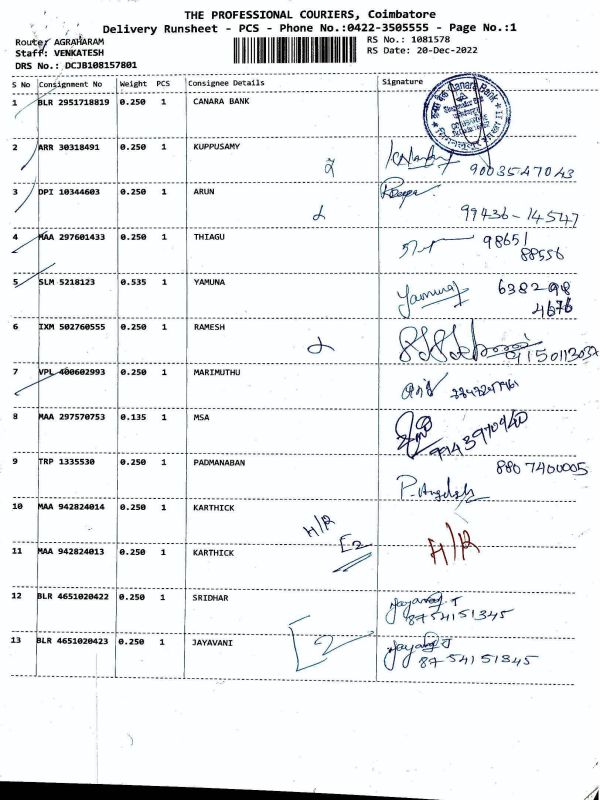 THE PROFESSIONAL COURIERS, Coimbatore
Delivery Runsheet - PCS - Phone No.:0422-3505555 - Page No.:1
Route: AGRAHARAM RS No.: 1081578
Staff: VENKATESH RS Date: 20-Dec-2022
DRS No.: DCJB108157801
S No Consignment No Weight PCS Consignee Details Signature
1 BLR 2951718819 0.250 1 CANARA BANK Canara Bank
2 ARR 30318491 0.250 1 KUPPUSAMY
9003547043
3 DPI 10344603 0.250 1 ARUN
99436-14547
4 MAA 297601433 0.250 1 THIAGU 98651
88556
5 SLM 5218123 0.535 1 YAMUNA Yamuna 6382918
4676
6 IXM 502760555 0.250 1 RAMESH
7 VPL 400602993 0.250 1 MARIMUTHU
8 MAA 297570753 0.135 1 MSA
9943970940
9 TRP 1335530 0.250 1 PADMANABAN 8807400005
10 MAA 942824014 0.250 1 KARTHICK
H/R E2 H/R
11 MAA 942824013 0.250 1 KARTHICK
12 BLR 4651020422 0.250 1 SRIDHAR
8754151345
13 BLR 4651020423 0.250 1 JAYAVANI E2
8754151345